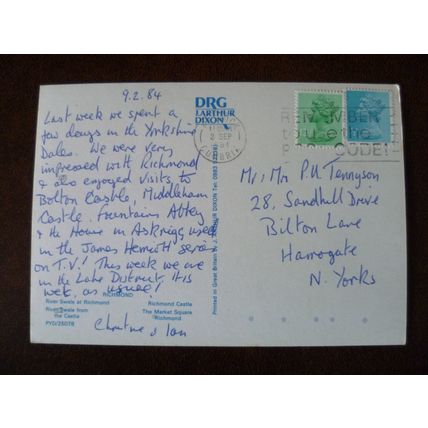 9.2.84
Last week we spent a
few days in the Yorkshire
Dales. We were very
impressed with Richmond
& also enjoyed visits to
Bolton Castle, Middleham
Castle. Fountains Abbey
& the House in Askrigg used
in the James Herriott series
on T.V.! This week we are
in the Lake District. It is
wet, as usual!
Christine & Ian
RICHMOND
River Swale at Richmond
Richmond Castle
River Swale from
the Castle
The Market Square
Richmond
PYD/25078
DRG
J.ARTHUR
DIXON
Printed in Great Britain J. ARTHUR DIXON Tel: 0983
2 SEP
CUMBRIA
REMEMBER
to use the
POST CODE!
Mr & Mrs P.H Tennyson
28, Sandhill Drive
Bilton Lane
Harrogate
N. Yorks